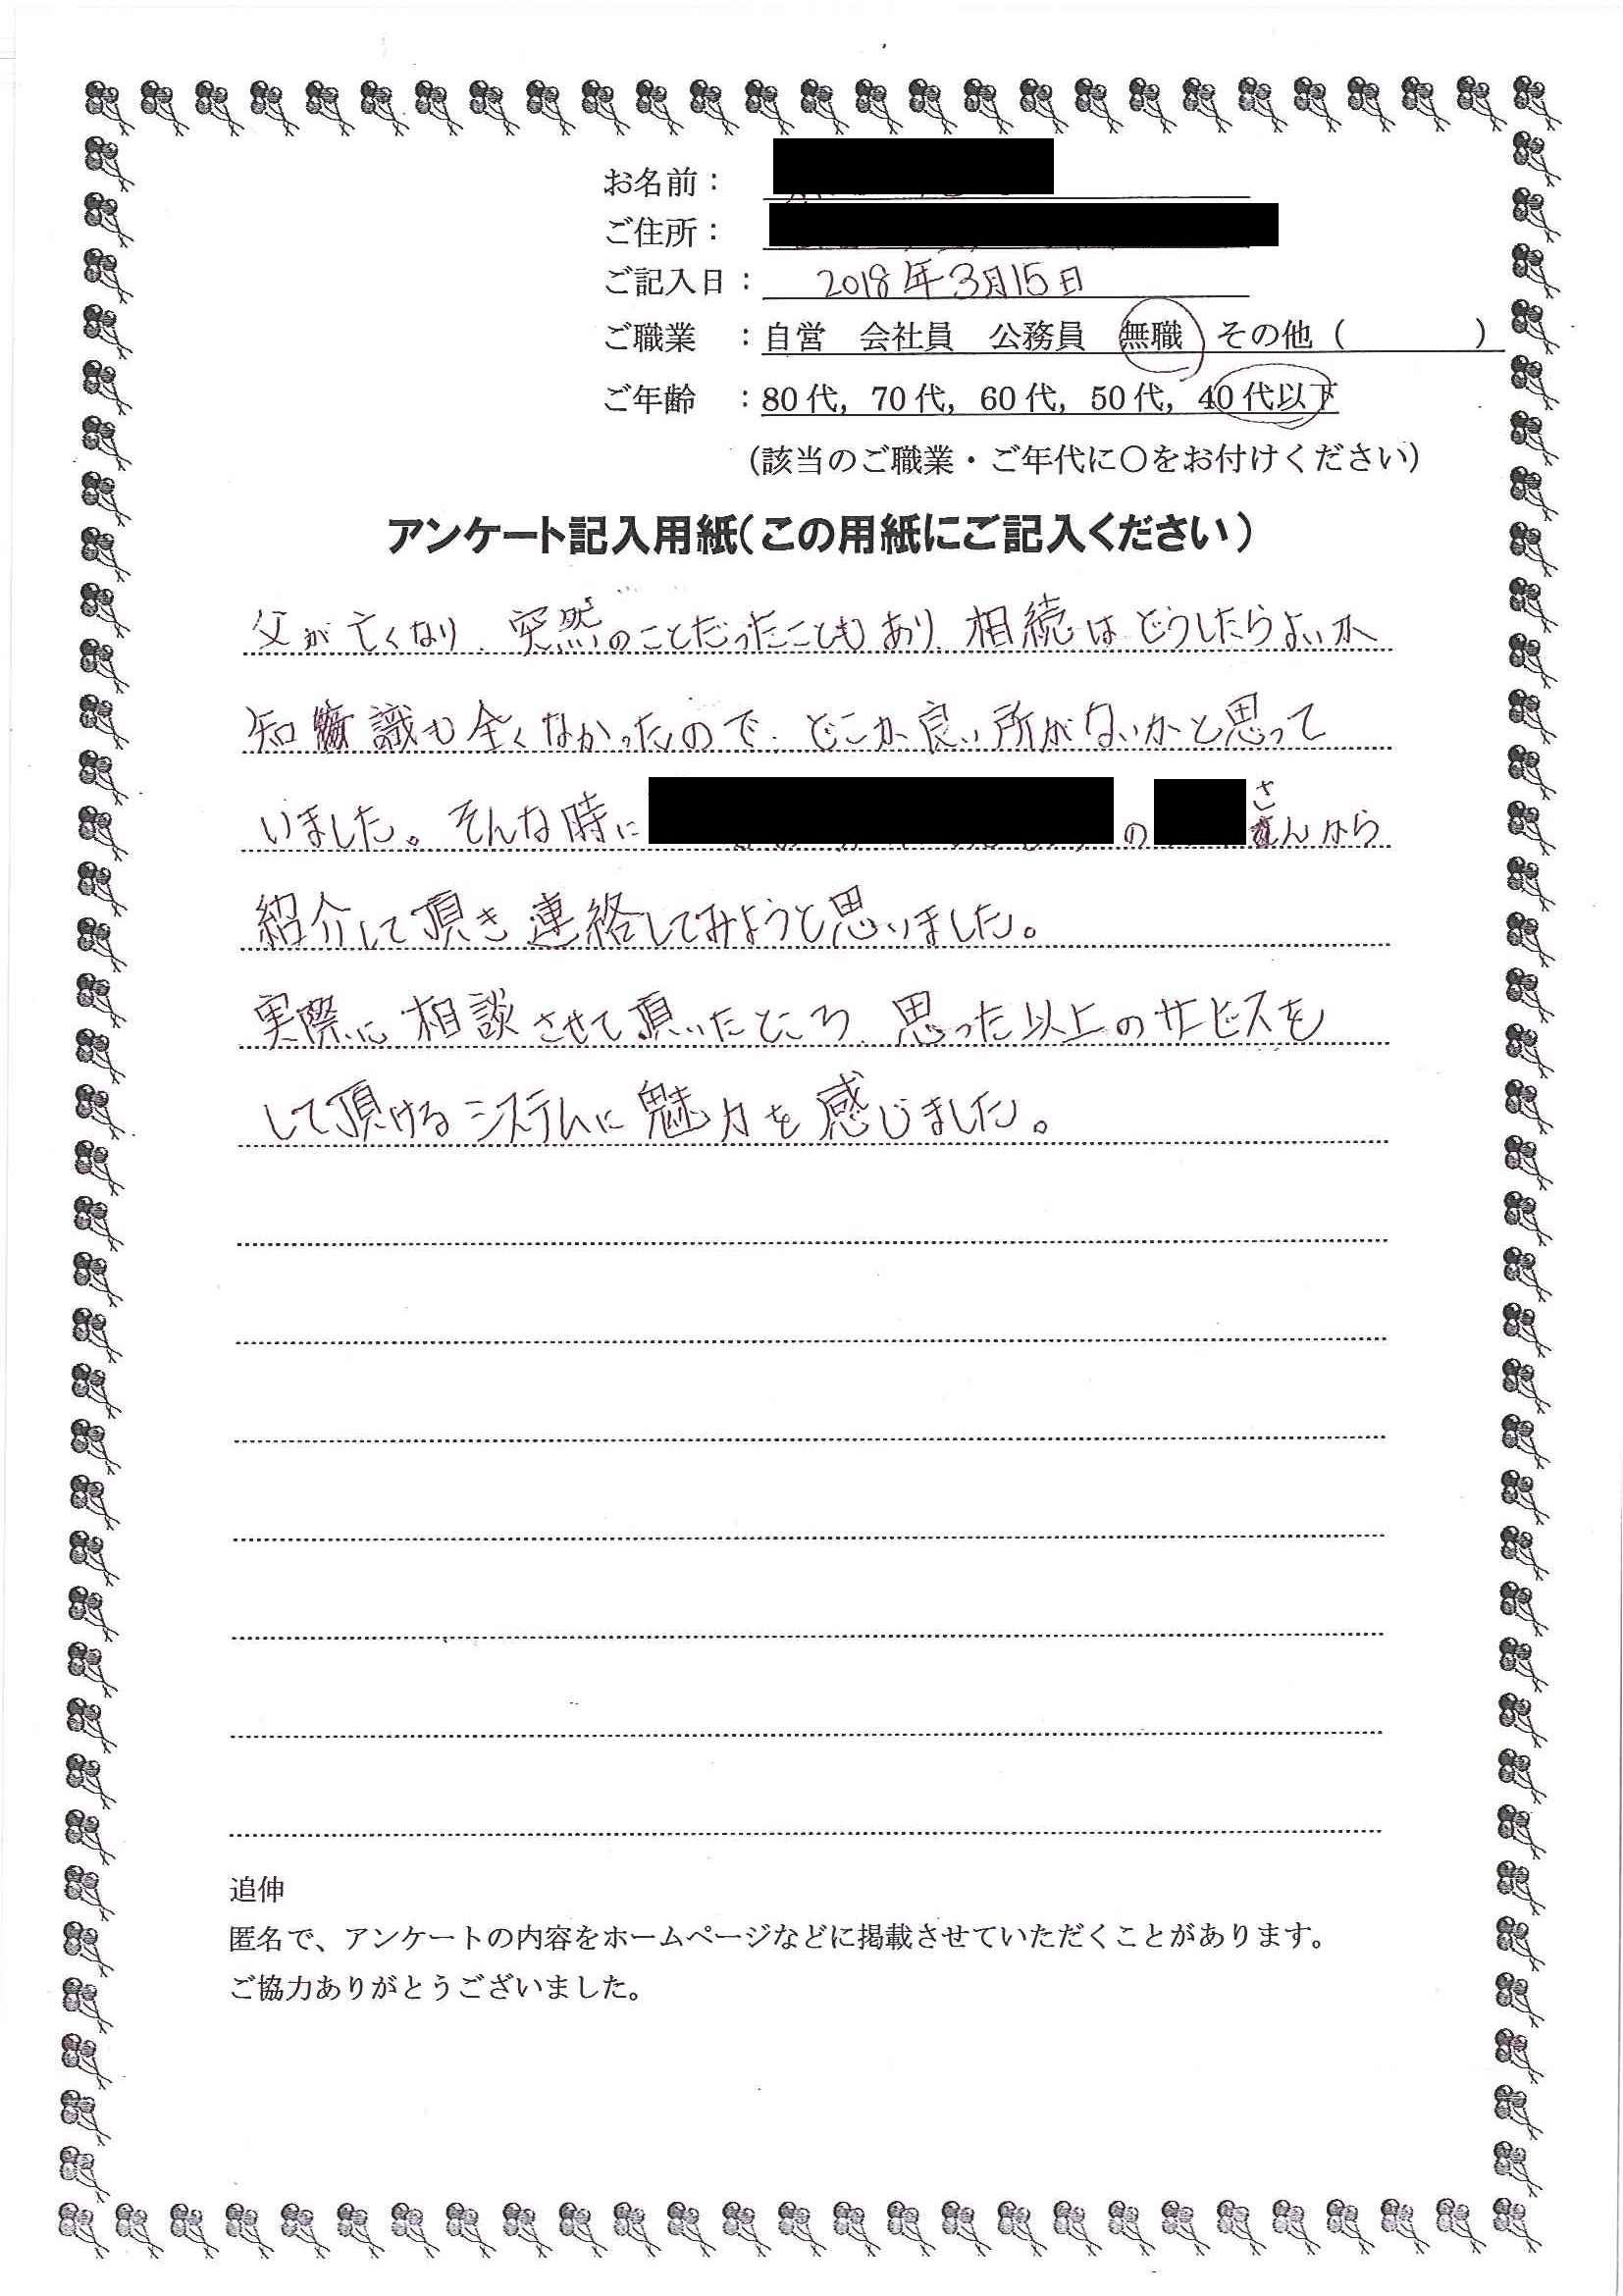 お名前：
ご住所：
ご記入日： 2018年3月15日
ご職業 ：自営 会社員 公務員 無職 その他（ ）
ご年齢 ：80代，70代，60代，50代，40代以下
（該当のご職業・ご年代に〇をお付けください）
アンケート記入用紙（この用紙にご記入ください）
父が亡くなり、突然のことだったこともあり、相続はどうしたらよいか
知識も全くなかったので、どこか良い所がないかと思って
いました。そんな時に の さんから
紹介して頂き連絡してみようと思いました。
実際に相談させて頂いたところ、思った以上のサービスを
して頂けるシステムに魅力を感じました。
追伸
匿名で、アンケートの内容をホームページなどに掲載させていただくことがあります。
ご協力ありがとうございました。